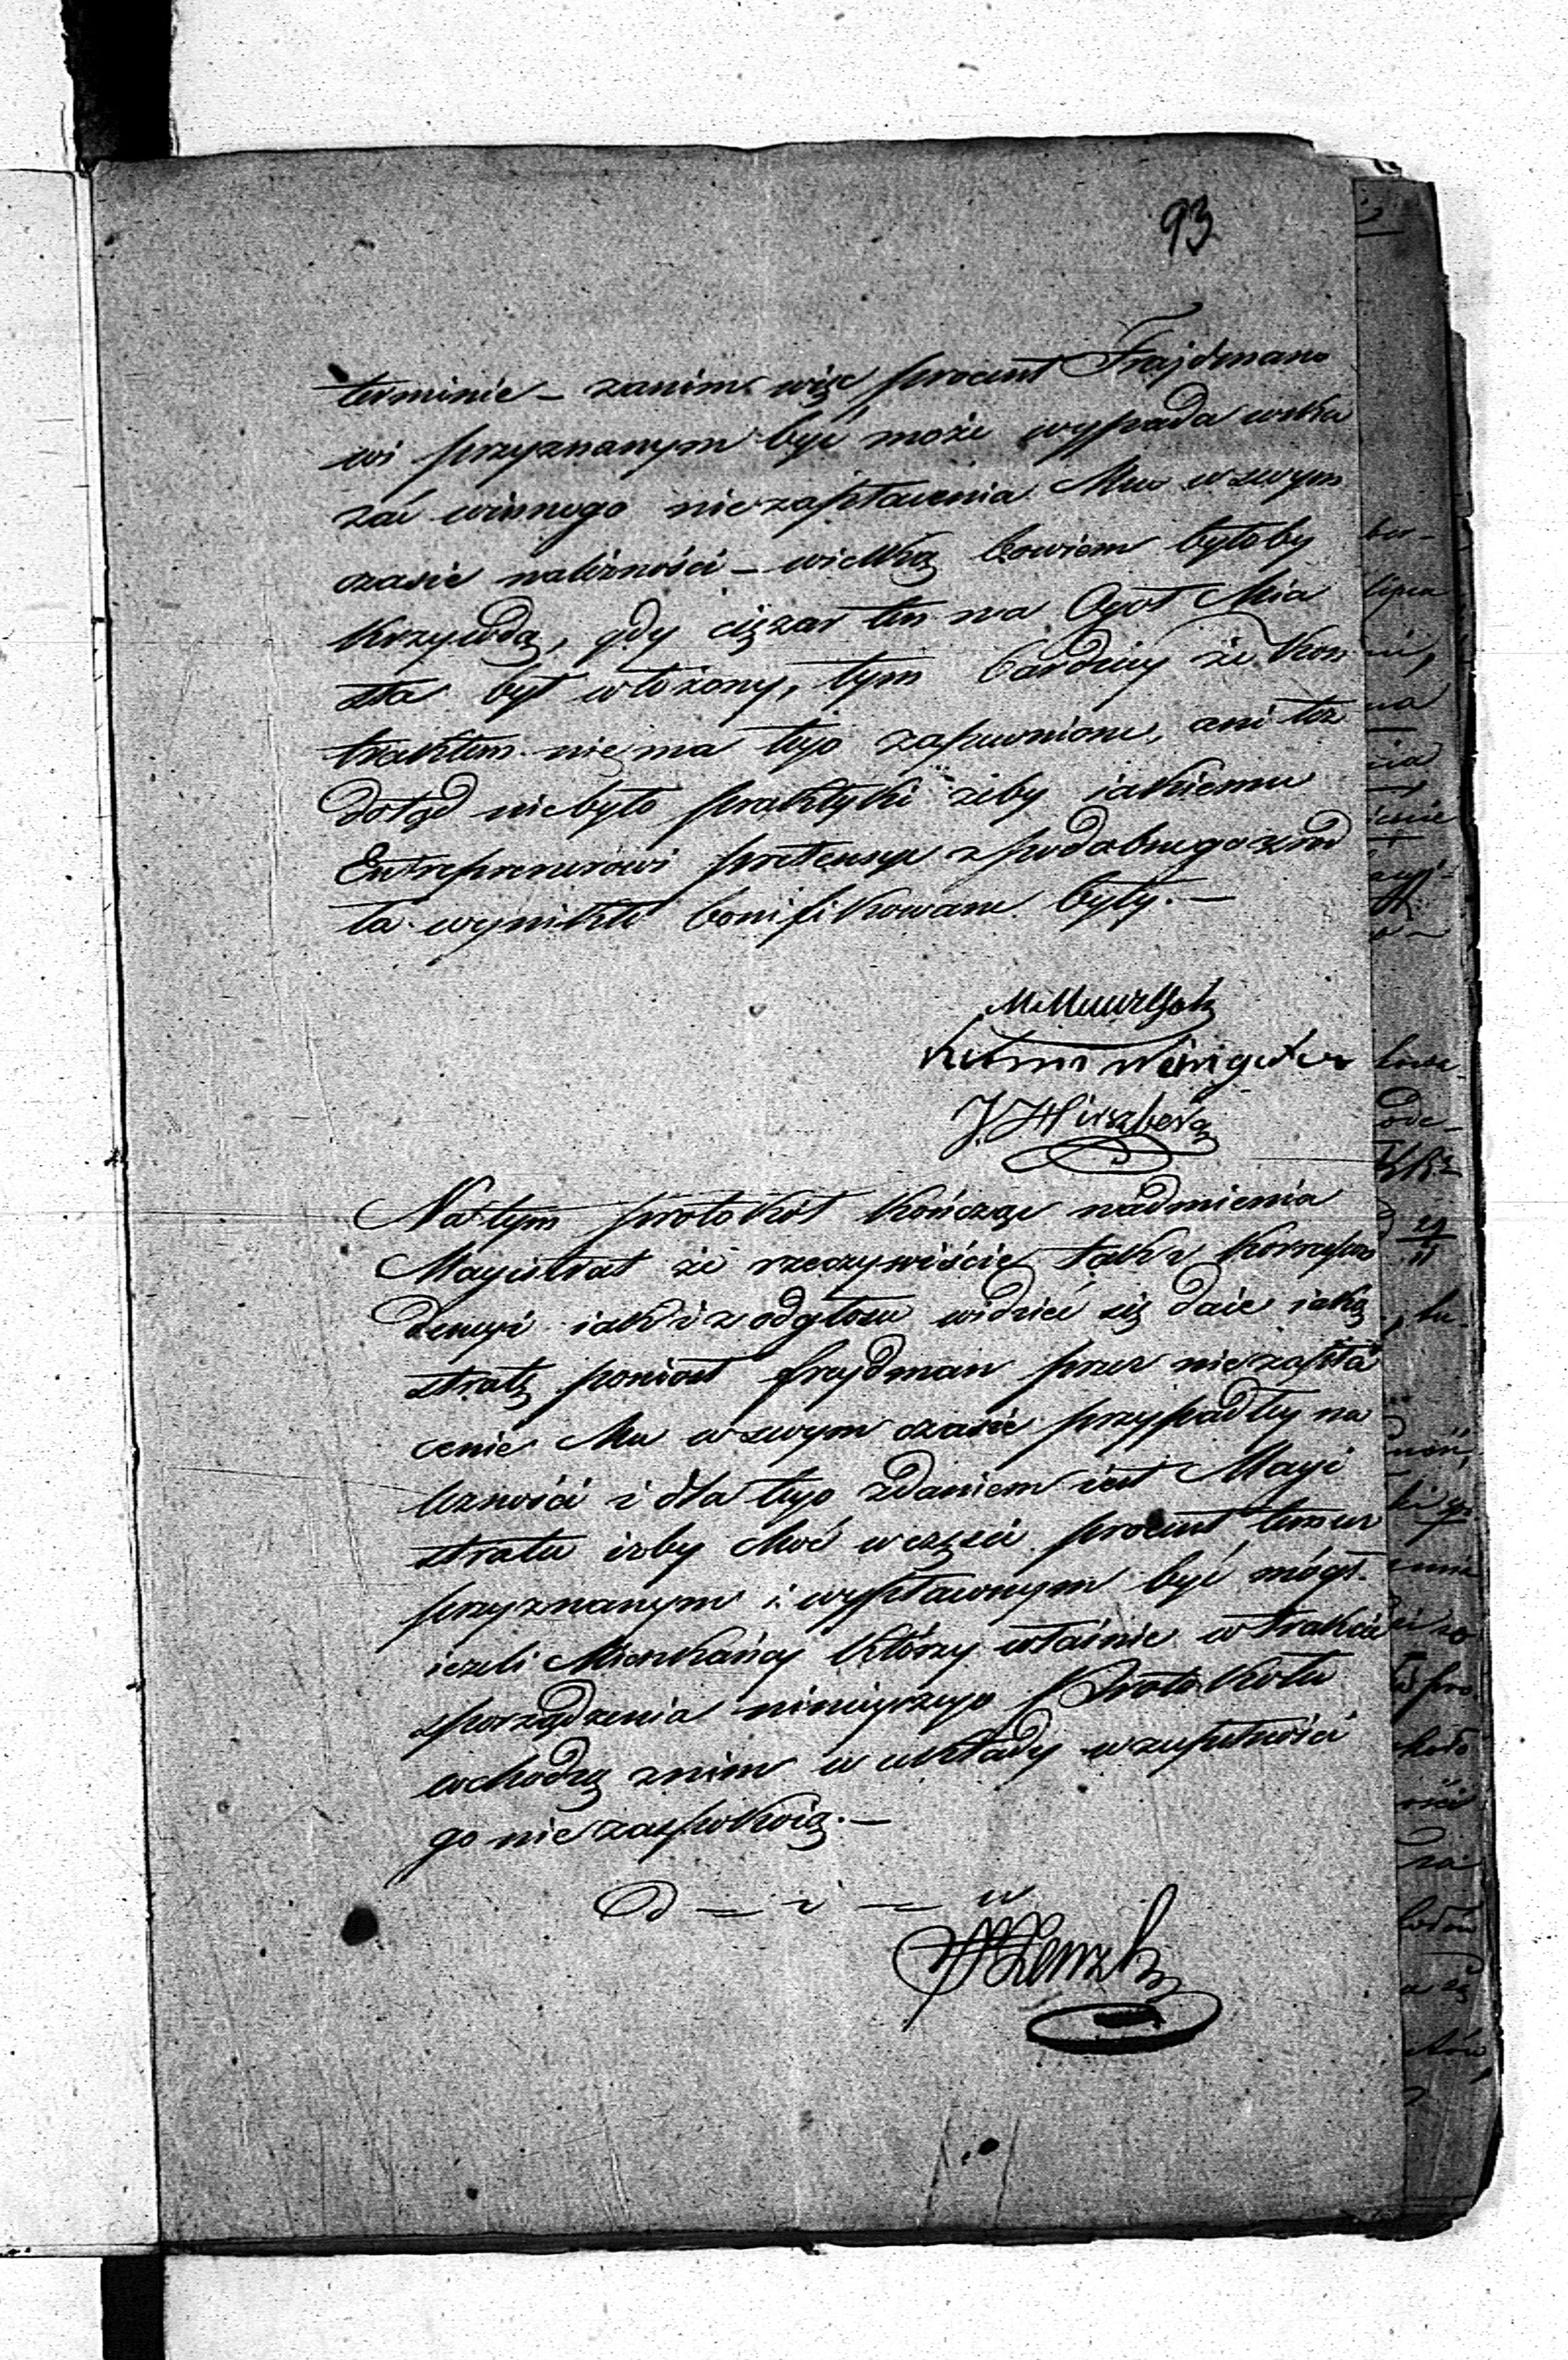 93
terminie – zanim więc procent Frajdmano
wi przyznanym być może wypada wska
zać winnego niezapłacenia Mu w swym
czasie należności – wielką bowiem byłoby
krzywdą, gdy ciężar ten na Ogół Mia
sta był włożony, tym bardziey że Kon
traktem nie ma tego zapewnione, ani też
dotąd niebyło praktyki żeby iakiemu
Entreprenerowi pretensye z podobnego źród
ła wynikłe bonifikowane były. –
J. Hirszberg
Na tym protokół kończąc nadmienia
Magistrat że rzeczywiście tak z Korrespon
dencyi iak i z odgłosu widzieć się daie iaką
stratę poniosł frajdman przez niezapła
cenie Mu w swym czasie przypadłey na
leżności i dla tego zdaniem iest Magi
stratu iżby choć w części procent temuż
przyznanym i wypłaconym być mógł
ieżeli Mieszkańcy którzy właśnie w trakcie
sporządzenia ninieyszego Protokołu
wchodzą z nim w układy w zupełności
go nie zaspokoią. –